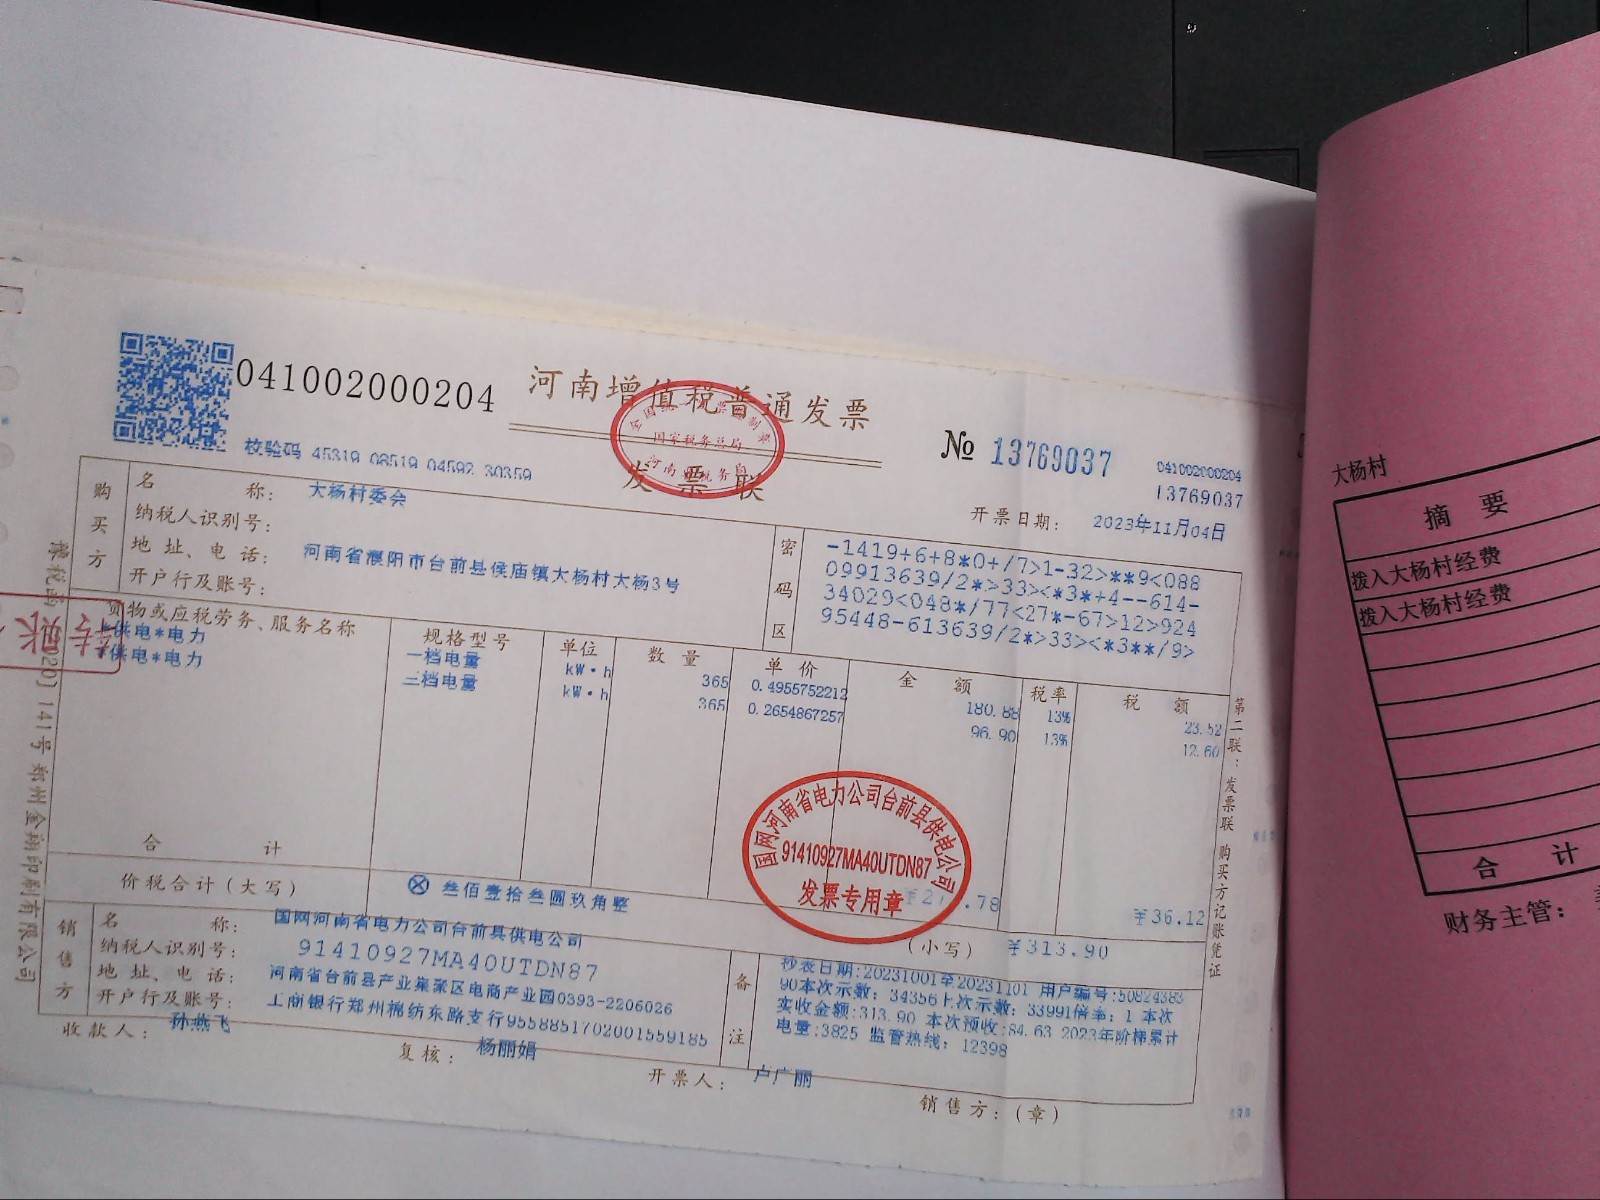 041002000204
河南增值税普通发票
发票联
全国统一发票监制章
国家税务总局
河南省税务局
№ 13769037
041002000204
13769037
校验码 45319 08519 04592 30359
开票日期: 2023年11月04日
购买方
名 称: 大杨村委会
纳税人识别号:
地 址、电 话: 河南省濮阳市台前县侯庙镇大杨村大杨3号
开户行及账号:
密码区
-1419+6+8*0+/7>1-32>**9<088
09913639/2*>33><*3*+4--614-
34029<048*/77<27*-67>12>924
95448-613639/2*>33><*3**/9>
货物或应税劳务、服务名称 规格型号 单位 数 量 单 价 金 额 税率 税 额
*供电*电力 一档电量 kW·h 365 0.4955752212 180.88 13% 23.52
*供电*电力 三档电量 kW·h 365 0.2654867257 96.90 13% 12.60
合 计 .78 ¥36.12
价税合计(大写) ⊗ 叁佰壹拾叁圆玖角整 (小写) ¥313.90
国网河南省电力公司台前县供电公司
91410927MA40UTDN87
发票专用章
销售方
名 称: 国网河南省电力公司台前县供电公司
纳税人识别号: 91410927MA40UTDN87
地 址、电 话: 河南省台前县产业集聚区电商产业园0393-2206026
开户行及账号: 工商银行郑州棉纺东路支行9558851702001559185
备注
抄表日期:20231001至20231101 用户编号:50824383
90本次示数: 34356上次示数: 33991倍率: 1 本次
实收金额:313.90 本次预收:84.63 2023年阶梯累计
电量:3825 监管热线: 12398
收款人: 孙燕飞
复核: 杨丽娟
开票人: 卢广丽
销售方:(章)
第二联:发票联 购买方记账凭证
141号 郑州金翔印刷有限公司
大杨村
摘 要
拨入大杨村经费
拨入大杨村经费
合 计
财务主管: